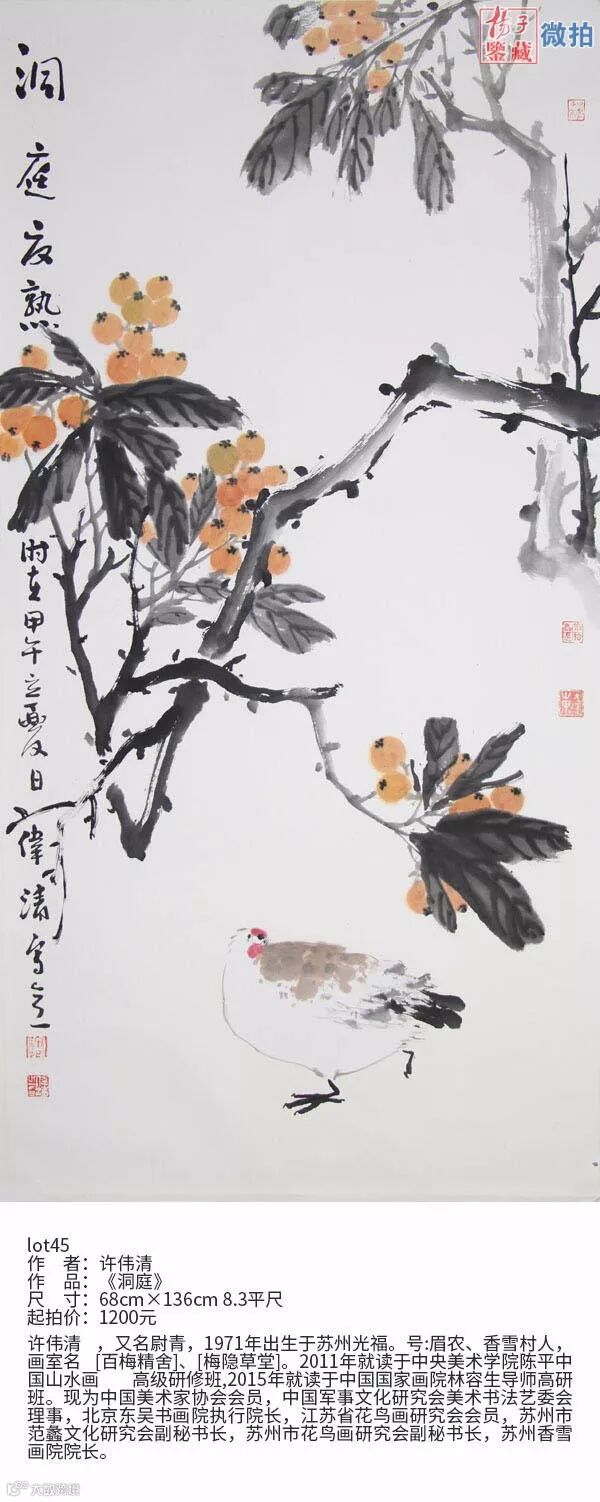 扬子
鉴藏
微拍
洞庭夜熟
时在甲午立夏日
伟清写意
lot45
作　者：许伟清
作　品：《洞庭》
尺　寸：68cm×136cm 8.3平尺
起拍价：1200元
许伟清　，又名尉青，1971年出生于苏州光福。号:眉农、香雪村人，
画室名　[百梅精舍]、[梅隐草堂]。2011年就读于中央美术学院陈平中
国山水画　　高级研修班,2015年就读于中国国家画院林容生导师高研
班。现为中国美术家协会会员，中国军事文化研究会美术书法艺委会
理事，北京东吴书画院执行院长，江苏省花鸟画研究会会员，苏州市
范蠡文化研究会副秘书长，苏州市花鸟画研究会副秘书长，苏州香雪
画院院长。